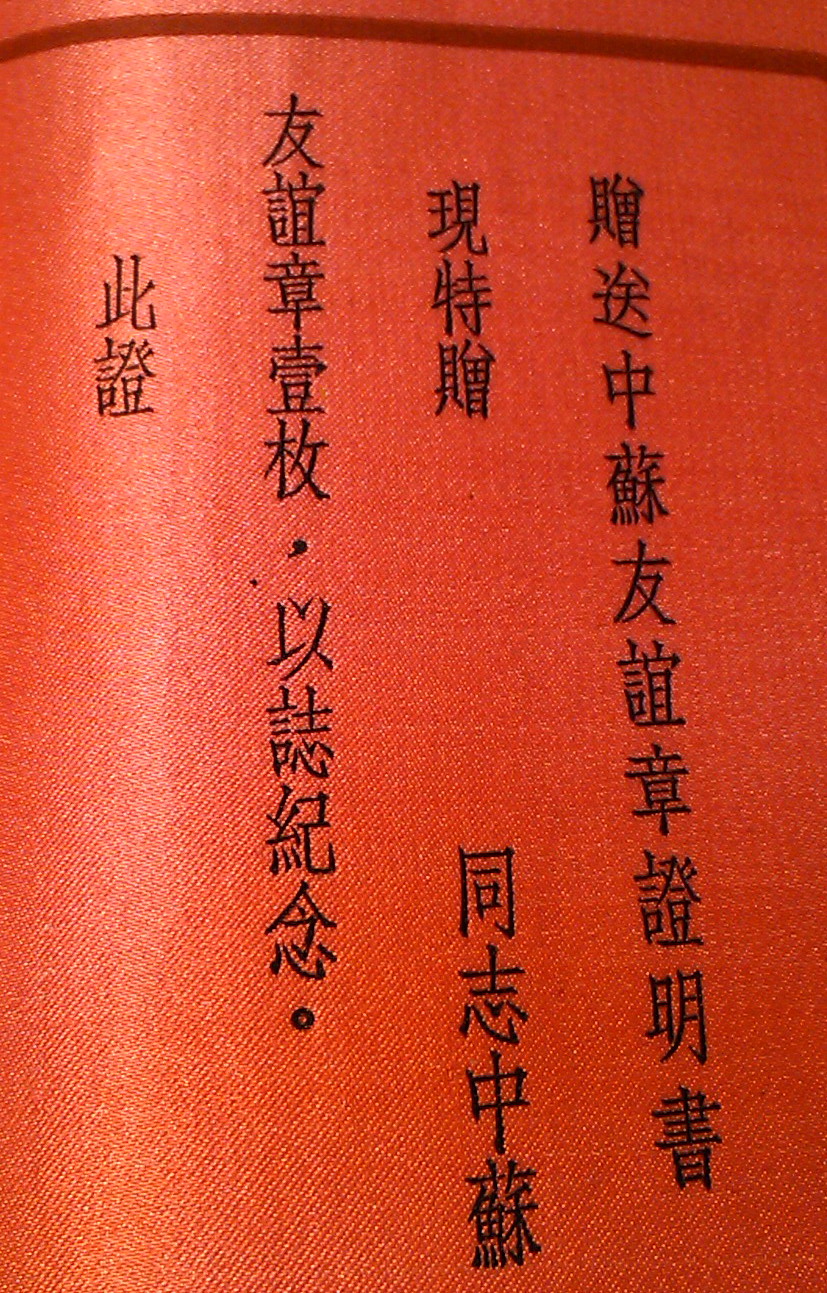 贈送中蘇友誼章證明書
現特贈 同志中蘇
友誼章壹枚，以誌紀念。
此證